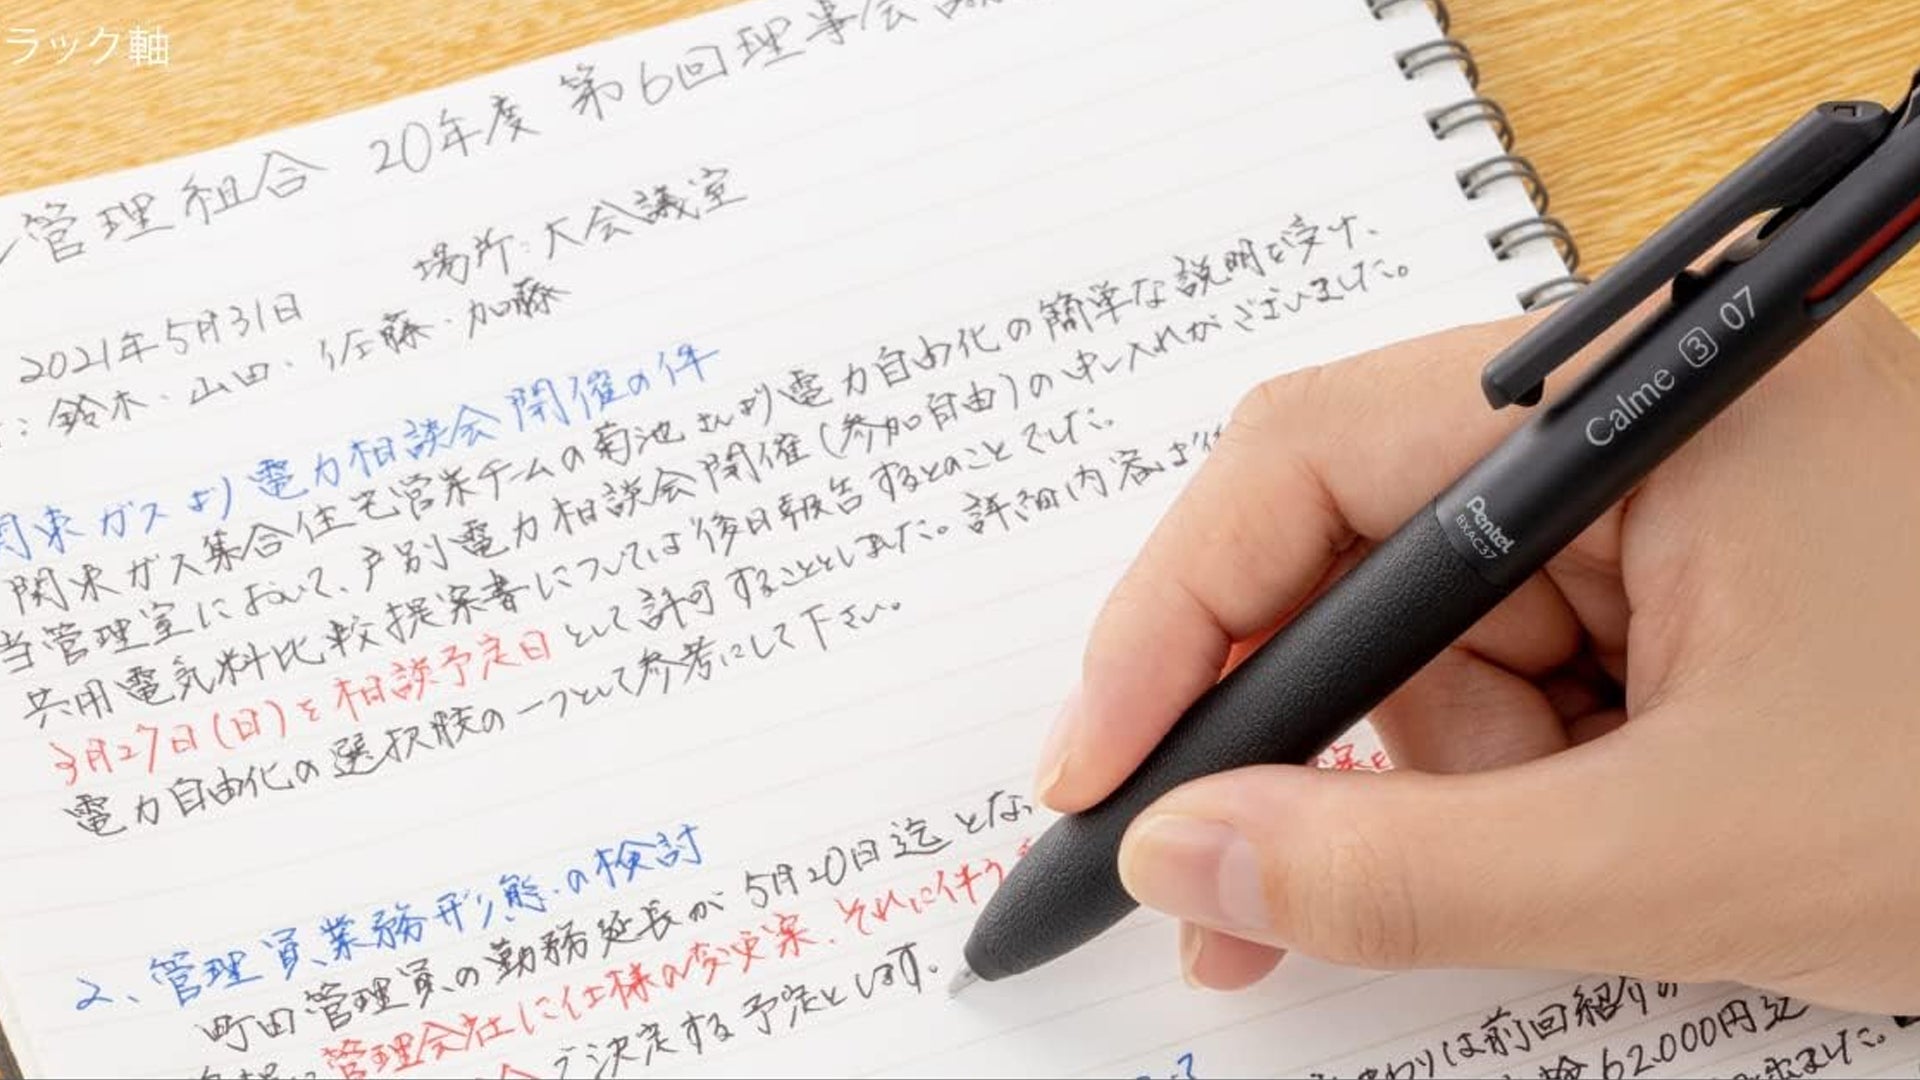 ラック軸
管理組合 20年度 第6回理事会
2021年5月31日 場所:大会議室
:鈴木・山田・佐藤・加藤
関東ガスより電力相談会開催の件
関東ガス集合住宅営業チームの菊池さんより電力自由化の簡単な説明を受け、
当管理室において、戸別電力相談会開催(参加自由)の申し入れがございました。
共用電気料比較提案書については後日報告するとのことでした。
3月27日(日)を相談予定日として許可することとしました。詳細内容は
電力自由化の選択肢の一つとして参考にして下さい。
2、管理員業務形態の検討
町田管理員の勤務延長が5月20日迄とな
管理会社に仕様の変更案、それに伴う
で決定する予定とします。
は前回紹介の
62,000円迄
来ました。
Calme 3 07
Pentel
BXAC37